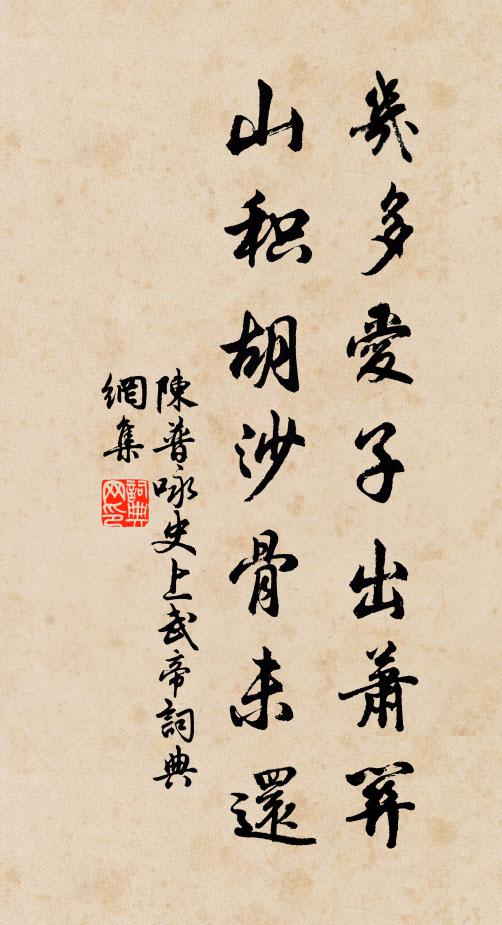 幾多愛子出蕭關
山积胡沙骨未還
陳普咏史上武帝詞典
網集
詞典
网印